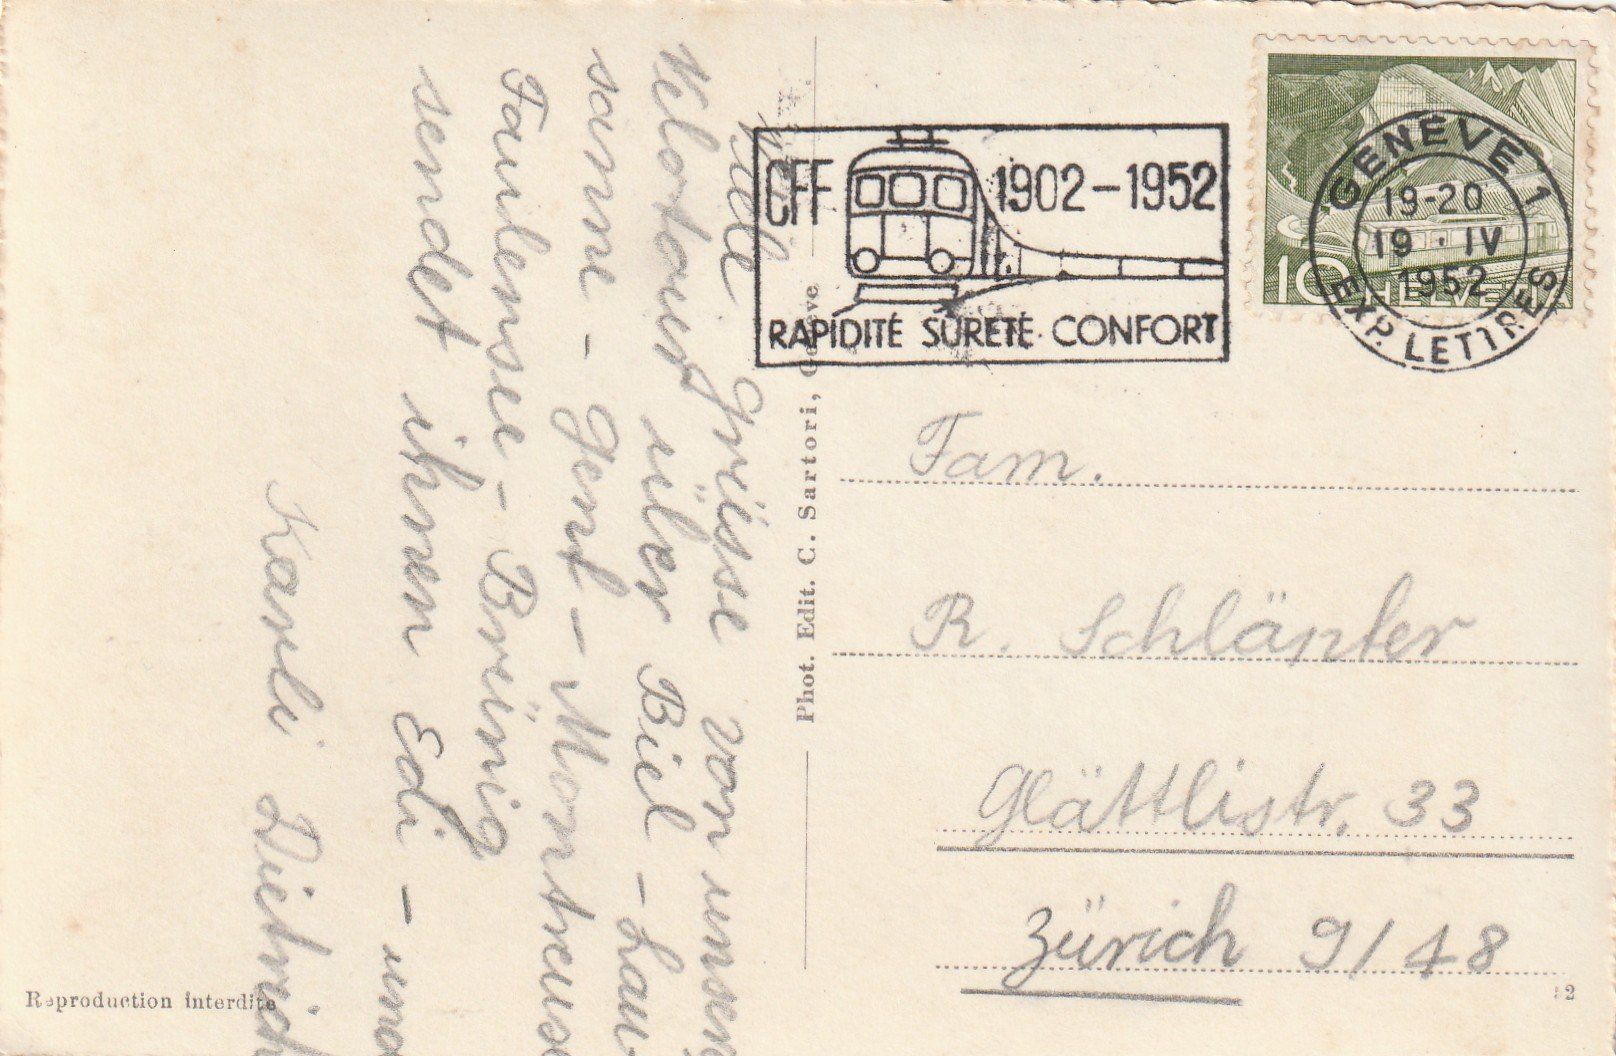 Viele Grüsse von unser
Velotour über Biel - Lau-
sanne - Genf - Montreux
Faulensee - Brünig
sendet ihnen Edi - und
Karli Dietrich
Phot. Edit. C. Sartori, Genève
Reproduction interdite
CFF 1902-1952
RAPIDITÉ SÛRETÉ CONFORT
GENÈVE 1
19-20
19·IV
1952
EXP. LETTRES
10 HELVETIA
Fam.
R. Schläpfer
Glättlistr. 33
Zürich 9/48